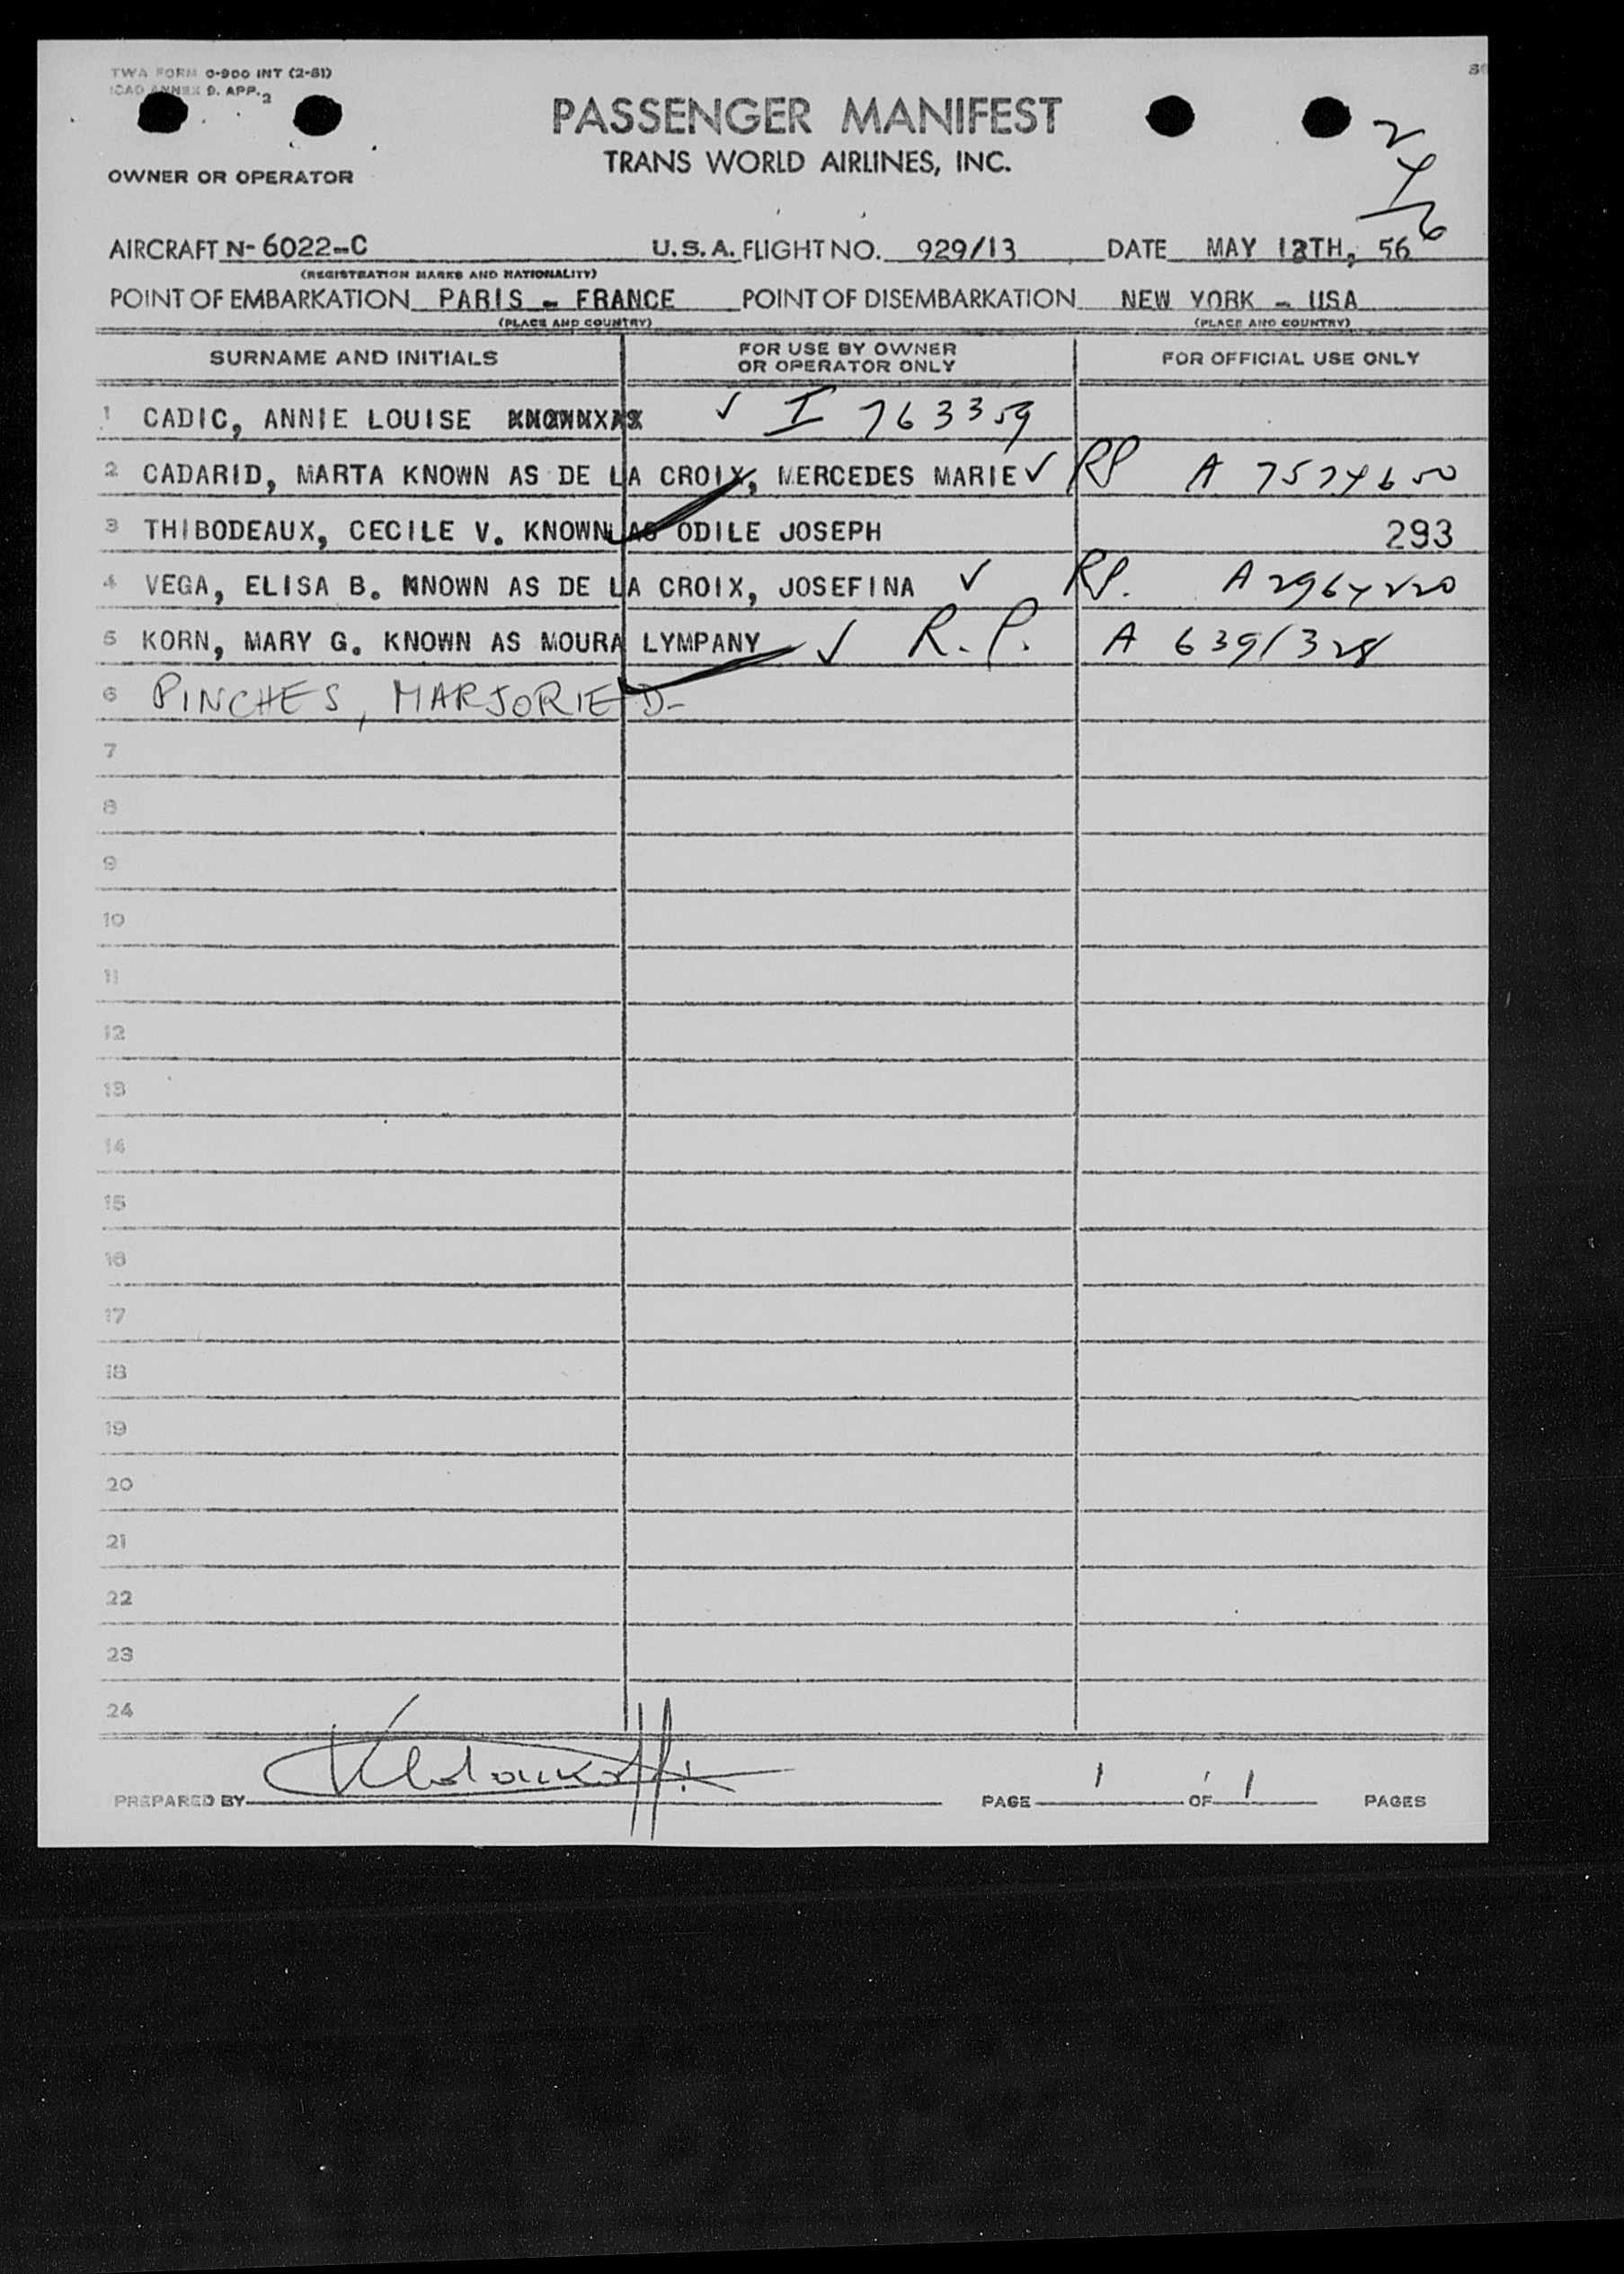 TWA FORM 0-900 INT (2-51)
ICAO ANNEX 9. APP. 2
PASSENGER MANIFEST
TRANS WORLD AIRLINES, INC.
2
4
6
OWNER OR OPERATOR
AIRCRAFT N-6022-C U.S.A. FLIGHT NO. 929/13 DATE MAY 13TH, 56
(REGISTRATION MARKS AND NATIONALITY)
POINT OF EMBARKATION PARIS - FRANCE POINT OF DISEMBARKATION NEW YORK - USA
(PLACE AND COUNTRY) (PLACE AND COUNTRY)
SURNAME AND INITIALS FOR USE BY OWNER OR OPERATOR ONLY FOR OFFICIAL USE ONLY
1 CADIC, ANNIE LOUISE ✓ I 763359
2 CADARID, MARTA KNOWN AS DE LA CROIX, MERCEDES MARIE ✓ RP A 7574650
3 THIBODEAUX, CECILE V. KNOWN AS ODILE JOSEPH 293
4 VEGA, ELISA B. KNOWN AS DE LA CROIX, JOSEFINA ✓ RP. A 2964220
5 KORN, MARY G. KNOWN AS MOURA LYMPANY ✓ R.P. A 6391328
6 PINCHES, MARJORIE D-
7
8
9
10
11
12
13
14
15
16
17
18
19
20
21
22
23
24
PREPARED BY PAGE 1 OF 1 PAGES